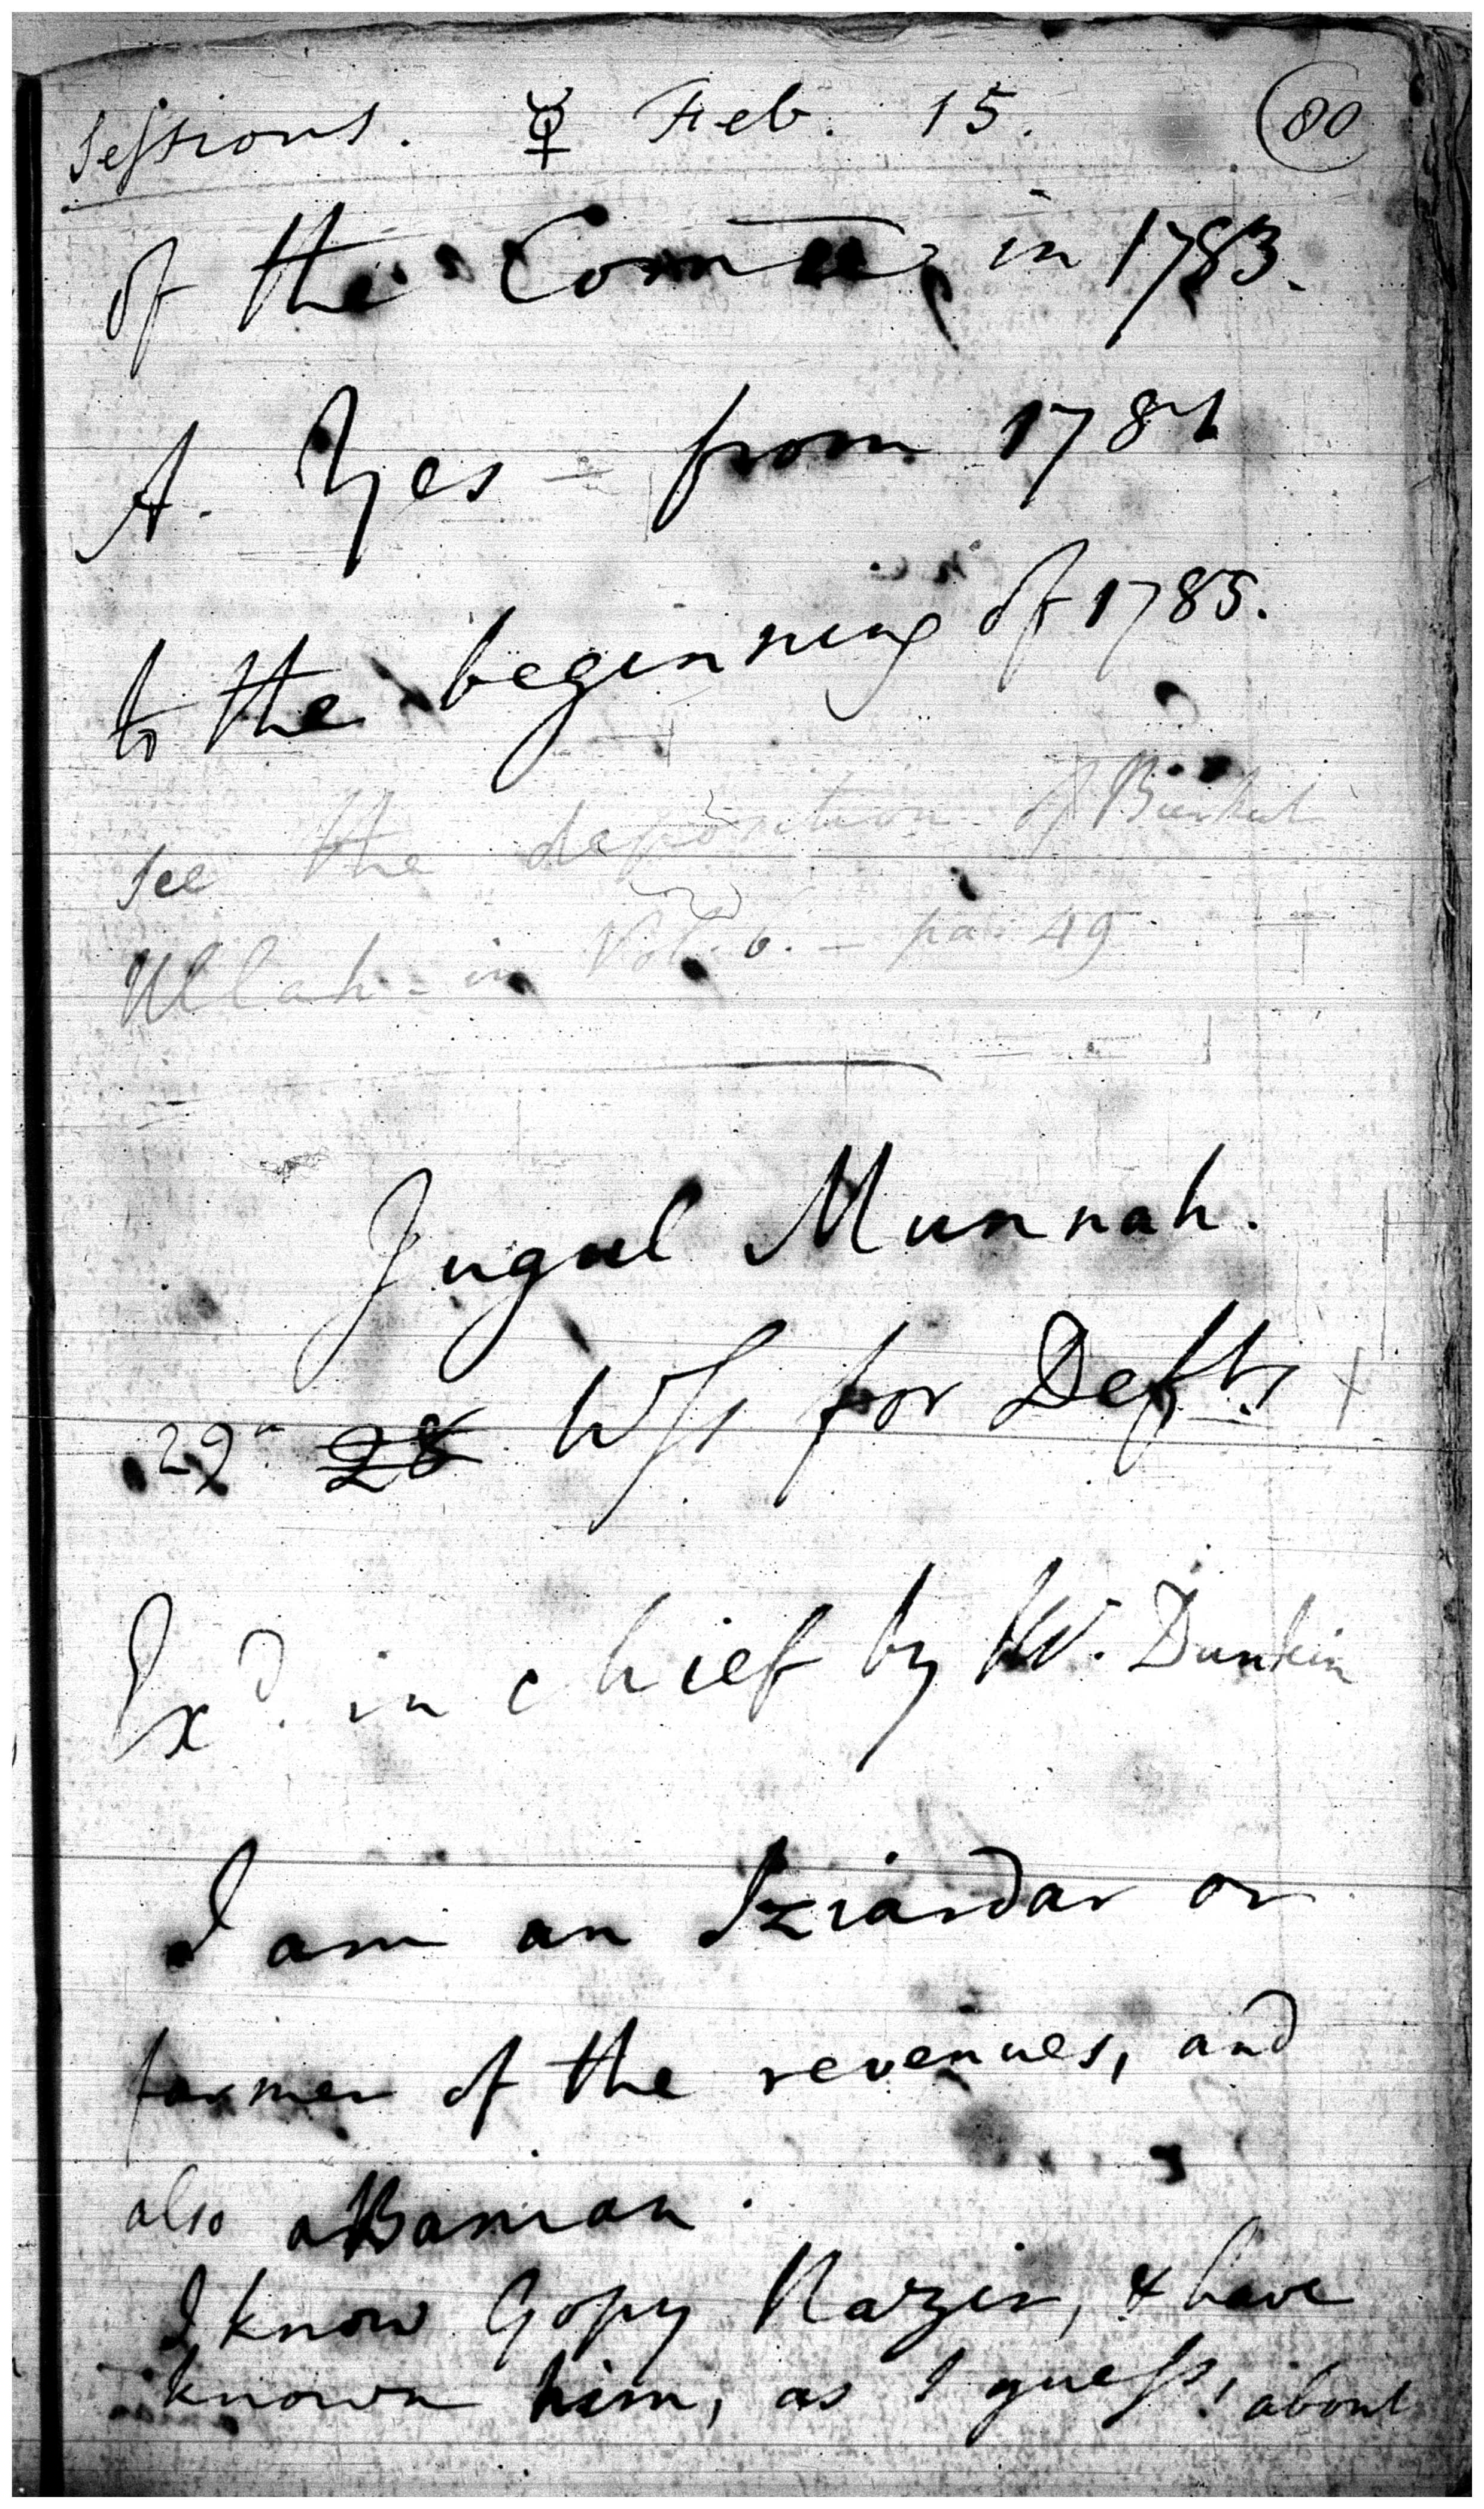 Sessions. ☿ Feb. 15. 80
of the Comee in 1783.
A. Yes - from 1781
to the beginning of 1785.
See the deposition of Burkut
Ullah - in Vol. 6. - pa. 49
Jugul Munnah.
29th 28 Wss for Defts
Exd. in chief by W. Dunkin
I am an Iziardar or
farmer of the revenues, and
also a Banian.
I know Gopy Nazir, & have
known him, as I guess, about